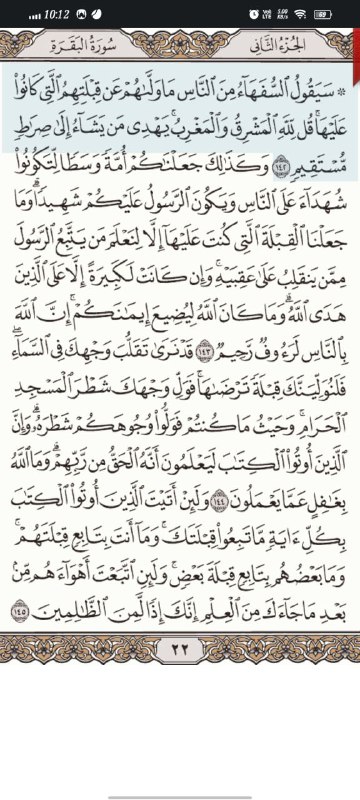 10:12
VoO LTE 5.00 KB/S 89
الجزء الثاني
سورة البقرة
۞ سَيَقُولُ ٱلسُّفَهَآءُ مِنَ ٱلنَّاسِ مَا وَلَّىٰهُمْ عَن قِبْلَتِهِمُ ٱلَّتِى كَانُوا۟
عَلَيْهَا ۚ قُل لِّلَّهِ ٱلْمَشْرِقُ وَٱلْمَغْرِبُ ۚ يَهْدِى مَن يَشَآءُ إِلَىٰ صِرَٰطٍ
مُّسْتَقِيمٍ ١٤٢ وَكَذَٰلِكَ جَعَلْنَٰكُمْ أُمَّةً وَسَطًا لِّتَكُونُوا۟
شُهَدَآءَ عَلَى ٱلنَّاسِ وَيَكُونَ ٱلرَّسُولُ عَلَيْكُمْ شَهِيدًا ۗ وَمَا
جَعَلْنَا ٱلْقِبْلَةَ ٱلَّتِى كُنتَ عَلَيْهَآ إِلَّا لِنَعْلَمَ مَن يَتَّبِعُ ٱلرَّسُولَ
مِمَّن يَنقَلِبُ عَلَىٰ عَقِبَيْهِ ۚ وَإِن كَانَتْ لَكَبِيرَةً إِلَّا عَلَى ٱلَّذِينَ
هَدَى ٱللَّهُ ۗ وَمَا كَانَ ٱللَّهُ لِيُضِيعَ إِيمَٰنَكُمْ ۚ إِنَّ ٱللَّهَ
بِٱلنَّاسِ لَرَءُوفٌ رَّحِيمٌ ١٤٣ قَدْ نَرَىٰ تَقَلُّبَ وَجْهِكَ فِى ٱلسَّمَآءِ ۖ
فَلَنُوَلِّيَنَّكَ قِبْلَةً تَرْضَىٰهَا ۚ فَوَلِّ وَجْهَكَ شَطْرَ ٱلْمَسْجِدِ
ٱلْحَرَامِ ۚ وَحَيْثُ مَا كُنتُمْ فَوَلُّوا۟ وُجُوهَكُمْ شَطْرَهُۥ ۗ وَإِنَّ
ٱلَّذِينَ أُوتُوا۟ ٱلْكِتَٰبَ لَيَعْلَمُونَ أَنَّهُ ٱلْحَقُّ مِن رَّبِّهِمْ ۗ وَمَا ٱللَّهُ
بِغَٰفِلٍ عَمَّا يَعْمَلُونَ ١٤٤ وَلَئِنْ أَتَيْتَ ٱلَّذِينَ أُوتُوا۟ ٱلْكِتَٰبَ
بِكُلِّ ءَايَةٍ مَّا تَبِعُوا۟ قِبْلَتَكَ ۚ وَمَآ أَنتَ بِتَابِعٍ قِبْلَتَهُمْ ۚ
وَمَا بَعْضُهُم بِتَابِعٍ قِبْلَةَ بَعْضٍ ۚ وَلَئِنِ ٱتَّبَعْتَ أَهْوَآءَهُم مِّنۢ
بَعْدِ مَا جَآءَكَ مِنَ ٱلْعِلْمِ ۙ إِنَّكَ إِذًا لَّمِنَ ٱلظَّٰلِمِينَ ١٤٥
٢٢